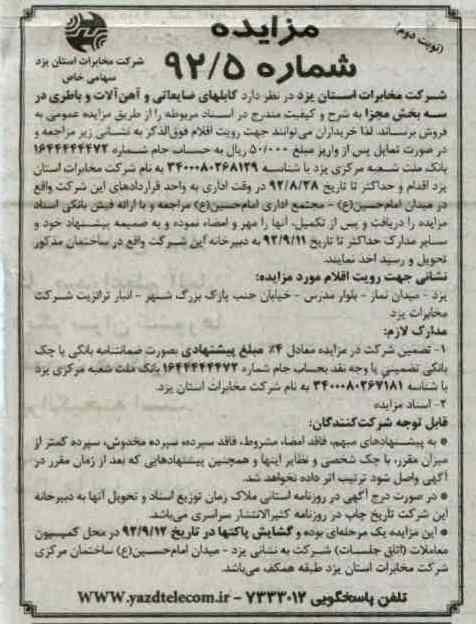 (نوبت دوم)
مزایده
شماره ۹۲/۵
شرکت مخابرات استان یزد
سهامی خاص
شرکت مخابرات استان یزد در نظر دارد کابلهای ضایعاتی و آهن‌آلات و باطری در
سه بخش مجزا به شرح و کیفیت مندرج در اسناد مربوطه را از طریق مزایده عمومی به
فروش برساند، لذا خریداران می‌توانند جهت رویت اقلام فوق‌الذکر به نشانی زیر مراجعه و
در صورت تمایل پس از واریز مبلغ ۵۰/۰۰۰ ریال به حساب جام شماره ۱۶۴۴۴۴۴۴۷۲
بانک ملت شعبه مرکزی یزد با شناسه ۳۴۰۰۰۸۰۲۶۸۱۲۹ به نام شرکت مخابرات استان
یزد اقدام و حداکثر تا تاریخ ۹۲/۸/۲۸ در وقت اداری به واحد قراردادهای این شرکت واقع
در میدان امام‌حسین(ع) - مجتمع اداری امام‌حسین(ع) مراجعه و با ارائه فیش بانکی اسناد
مزایده را دریافت و پس از تکمیل، آنها را مهر و امضاء نموده و به ضمیمه پیشنهاد خود و
سایر مدارک حداکثر تا تاریخ ۹۲/۹/۱۱ به دبیرخانه این شرکت واقع در ساختمان مذکور
تحویل و رسید اخذ نمایند.
نشانی جهت رویت اقلام مورد مزایده:
یزد - میدان نماز - بلوار مدرس - خیابان جنب پارک بزرگ شهر - انبار ترانزیت شرکت
مخابرات یزد
مدارک لازم:
۱- تضمین شرکت در مزایده معادل ۴٪ مبلغ پیشنهادی بصورت ضمانتنامه بانکی یا چک
بانکی تضمینی یا وجه نقد بحساب جام شماره ۱۶۴۴۴۴۴۴۷۲ بانک ملت شعبه مرکزی یزد
با شناسه ۳۴۰۰۰۸۰۲۶۷۱۸۱ به نام شرکت مخابرات استان یزد.
۲- اسناد مزایده
قابل توجه شرکت‌کنندگان:
● به پیشنهادهای مبهم، فاقد امضاء، مشروط، فاقد سپرده، سپرده مخدوش، سپرده کمتر از
میزان مقرر، یا چک شخصی و نظایر اینها و همچنین پیشنهادهایی که بعد از زمان مقرر در
آگهی واصل شود ترتیب اثر داده نخواهد شد.
● در صورت درج آگهی در روزنامه استانی ملاک زمان توزیع اسناد و تحویل آنها به دبیرخانه
این شرکت تاریخ چاپ در روزنامه کثیرالانتشار سراسری می‌باشد.
● این مزایده یک مرحله‌ای بوده و گشایش پاکتها در تاریخ ۹۲/۹/۱۲ در محل کمیسیون
معاملات (اتاق جلسات) شرکت به نشانی یزد - میدان امام‌حسین(ع) ساختمان مرکزی
شرکت مخابرات استان یزد طبقه همکف می‌باشد.
تلفن پاسخگویی ۷۲۳۳۰۱۲ - WWW.yazdtelecom.ir